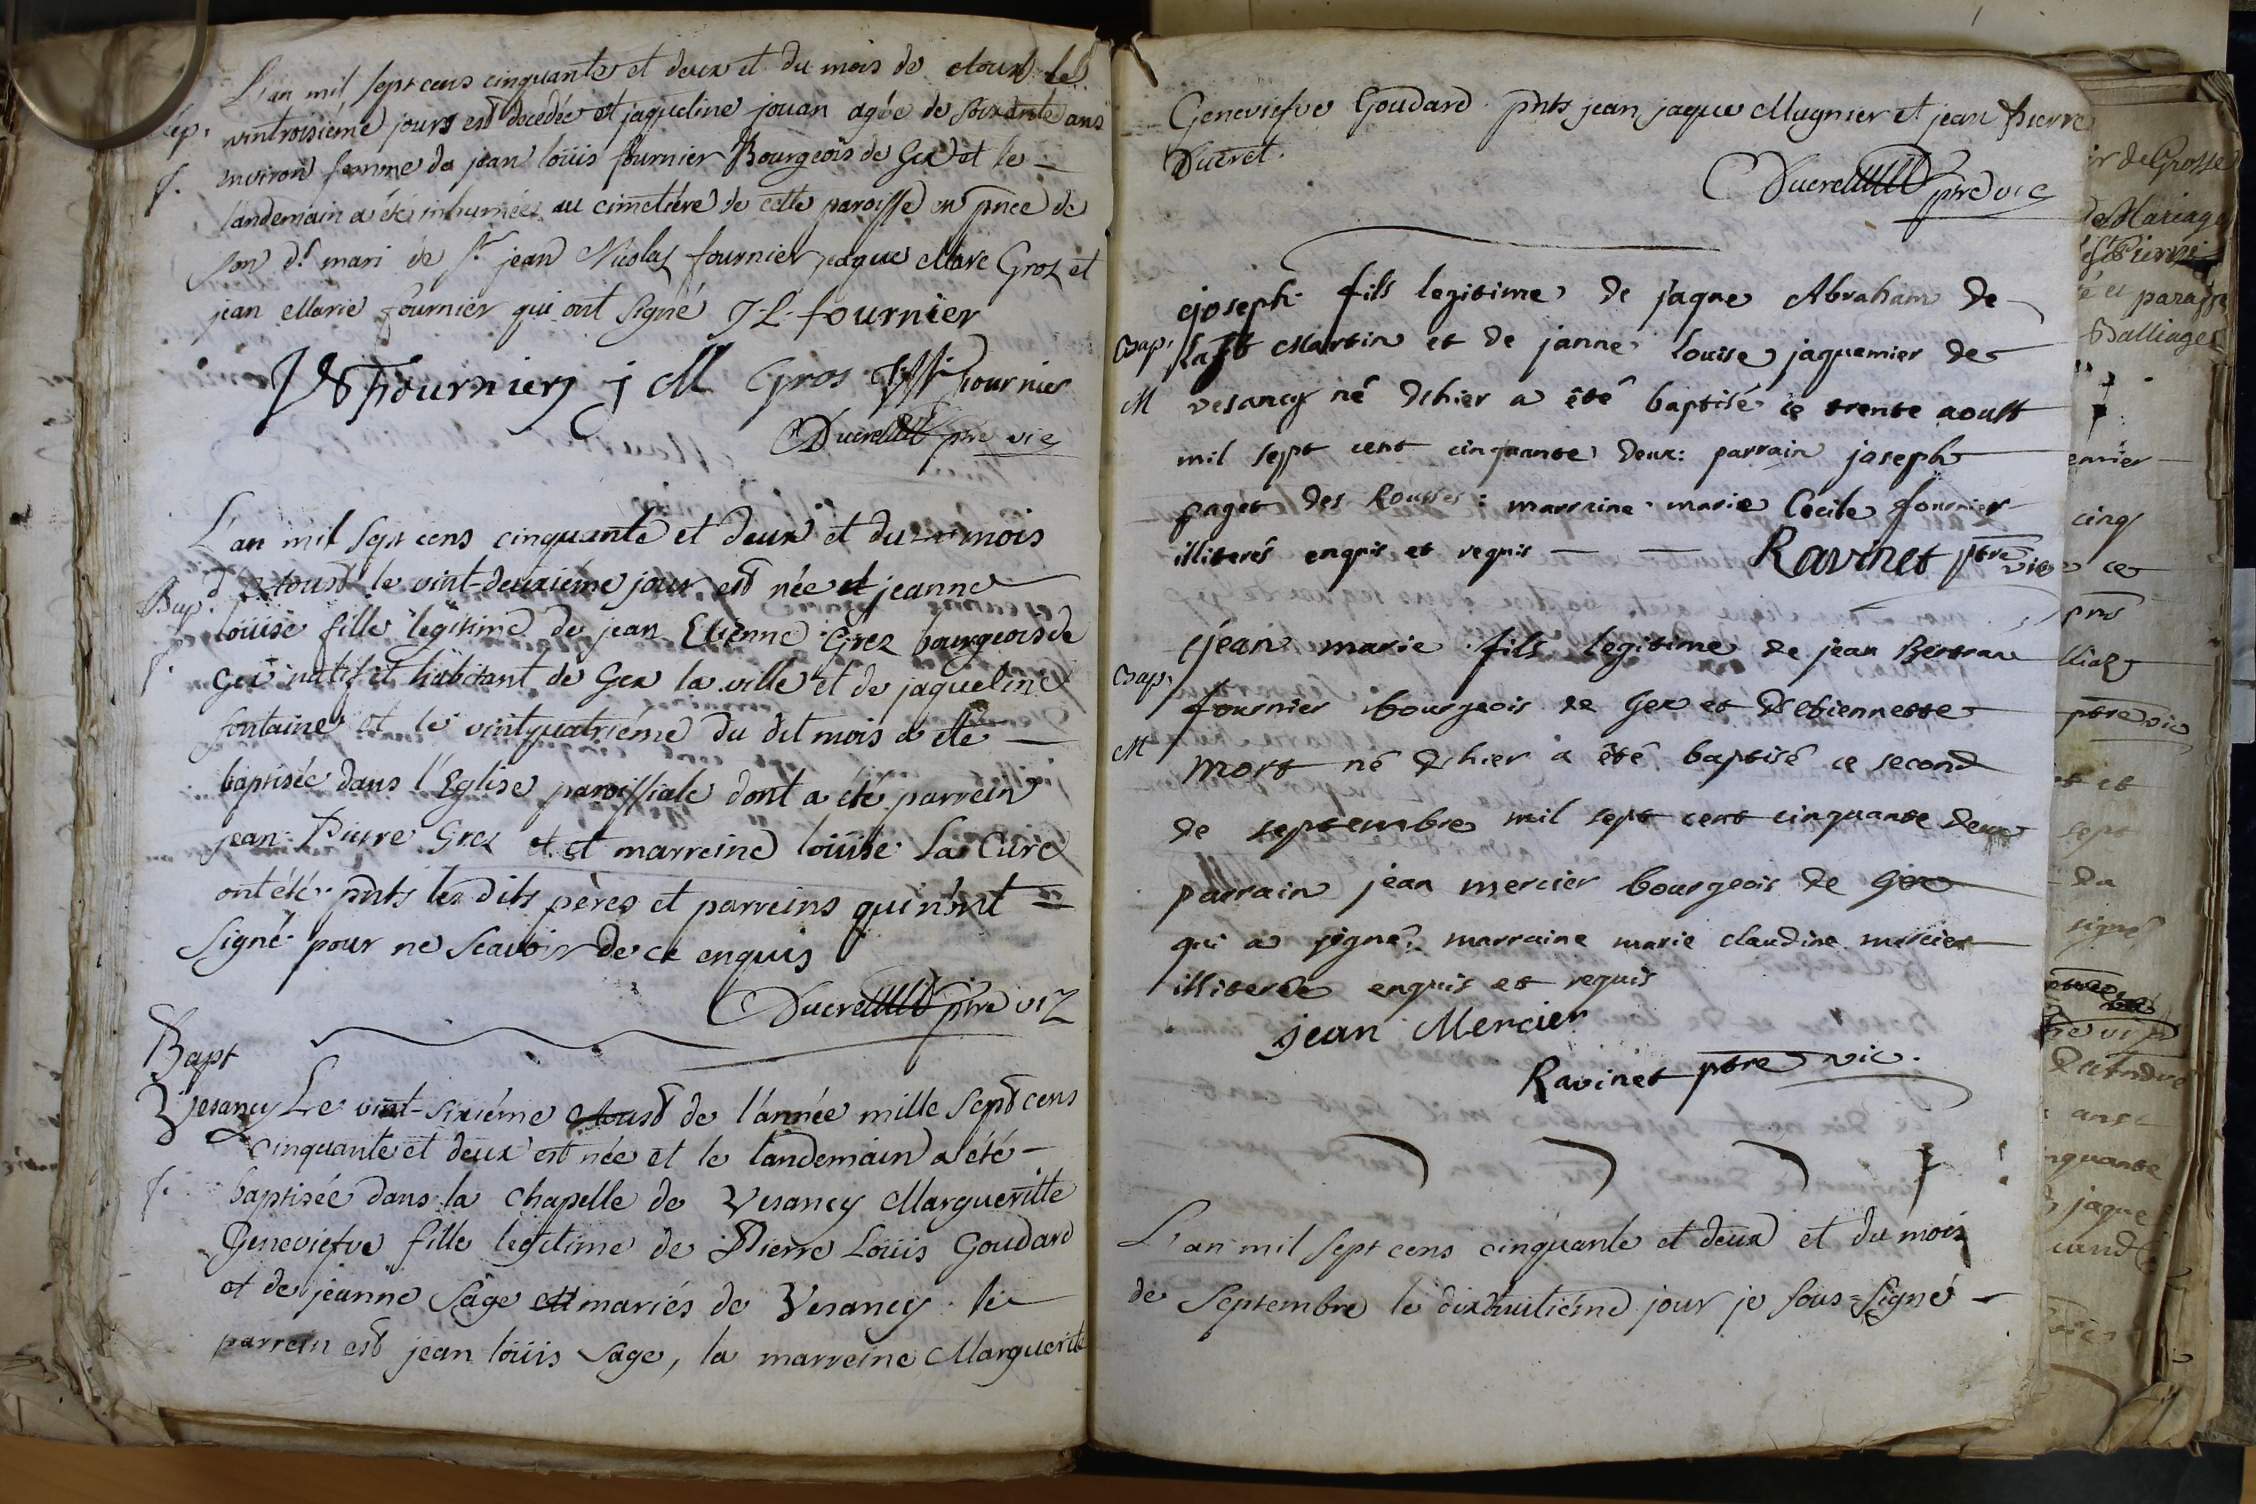 L'an mil sept cens cinquante et deux et du mois de Aoust le
Sép. vintroisiéme jours est decedée et jaqueline jouan agée de soixante ans
f. environ femme de jean loüis fournier Bourgeois de Gex et le
landemain a été inhumée au cimetiére de cette paroisse en pnce de
son dt mari de sr jean Nicolas fournier jaque Marc Gros et
jean Marie fournier qui ont signé J-L-fournier
fournier j M Gros fournier
Ducret ptre vic
L'an mil sept cens cinquante et deux et du mois
Bap. d'Aoust le vint-deuxiéme jour est née et jeanne
f. loüise fille légitime de jean Etienne Grez bourgeois de
Gex natif et habitant de Gex la ville et de jaqueline
fontaine et le vintquatriéme du dit mois a été
baptisée dans l'Eglise paroissiale dont a été parrein
jean Pierre Grez et et marreine loüise La Cure
ont été pnts les dits pères et parreins qui n'ont
signé pour ne scavoir de ce enquis
Ducret ptre vic
Bapt
Vesancy Le vint-sixiéme Aoust de l'année mille sept cens
cinquante et deux est née et le landemain a été
f. baptisée dans la chapelle de Vesancy Margueritte
Geneviefve fille legitime de Pierre Loüis Goudard
et de jeanne Sage mariés de Vesancy le
parrein est jean loüis Sage, la marreine Marguerite
Geneviefve Goudard pnts jean jaque Mugnier et jean Pierre
Ducret.
Ducret ptre vic
joseph fils legitime de jaque Abraham de
Bap. last Martin et de janne louise jaquemier de
M vesancy né d'hier a êtê baptisé ce trente aoust
mil sept cent cinquante deux: parrain joseph
paget des Rousses: marraine marie Cecile fournier
illiterés enquis et requis Ravinet ptre vic
jean marie fils legitime de jean Bertran
Bap. fournier bourgeois de Gex et d'etiennette
M Mort né d'hier a êtê baptisê ce second
de septembre mil sept cent cinquante deux
parrain jean mercier bourgeois de Gex
qui a signê, marraine marie claudine mercier
illiterée enquis et requis
jean Mercier
Ravinet ptre vic.
L'an mil sept cens cinquante et deux et du mois
de Septembre le dixhuitiéme jour je sous-signé